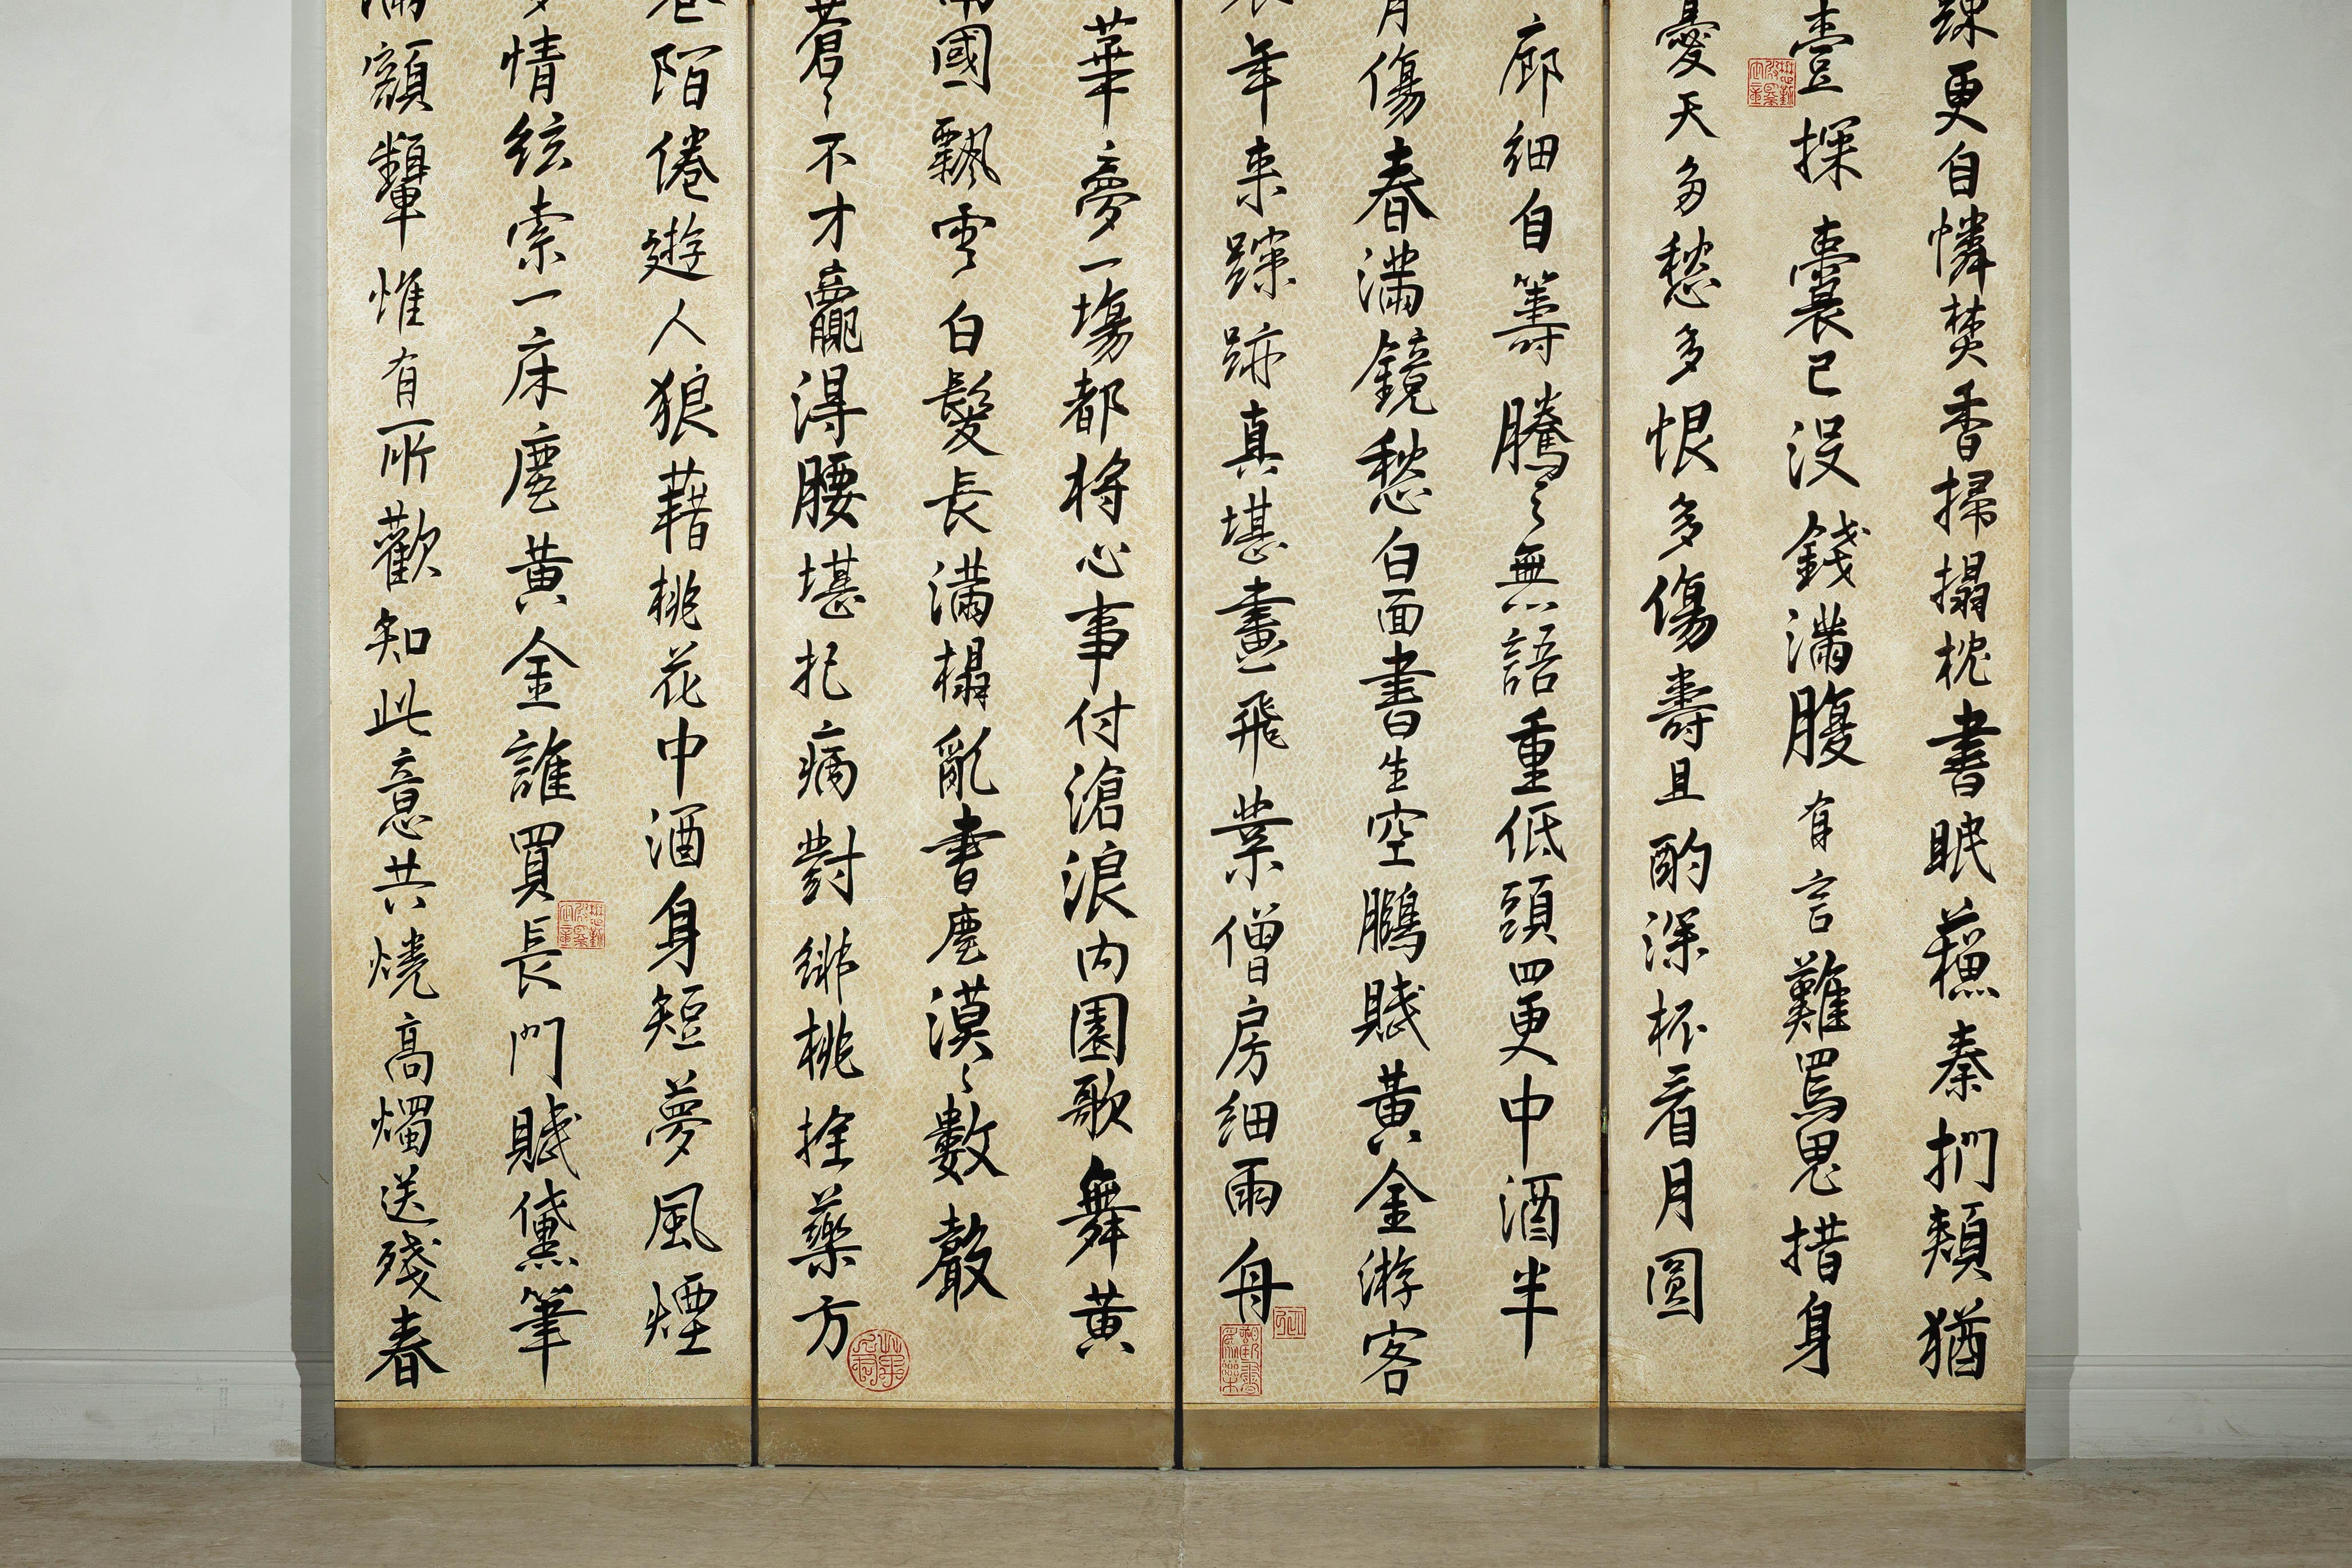 踈更自憐焚香掃搨枕書眠蘓秦捫頰猶
壹探囊已没錢滿腹有言難罵鬼措身
憂天多愁多恨多傷壽且酌深杯看月圓
廊細自籌騰々無語重低頭四更中酒半
月傷春滿鏡愁白面書生空鵬賦黃金游客
年来踪跡真堪畫飛業僧房細雨舟
華夢一塲都将心事付滄浪内園歌舞黄
國飄零白髮長滿榻亂書塵漠々數
蒼々不才贏得腰堪把病對緋桃拴藥方
巷陌倦遊人狼藉桃花中酒身短夢風煙
情絃索一床塵黃金誰買長門賦黛筆
滿額顰惟有所歡知此意共燒高燭送殘春